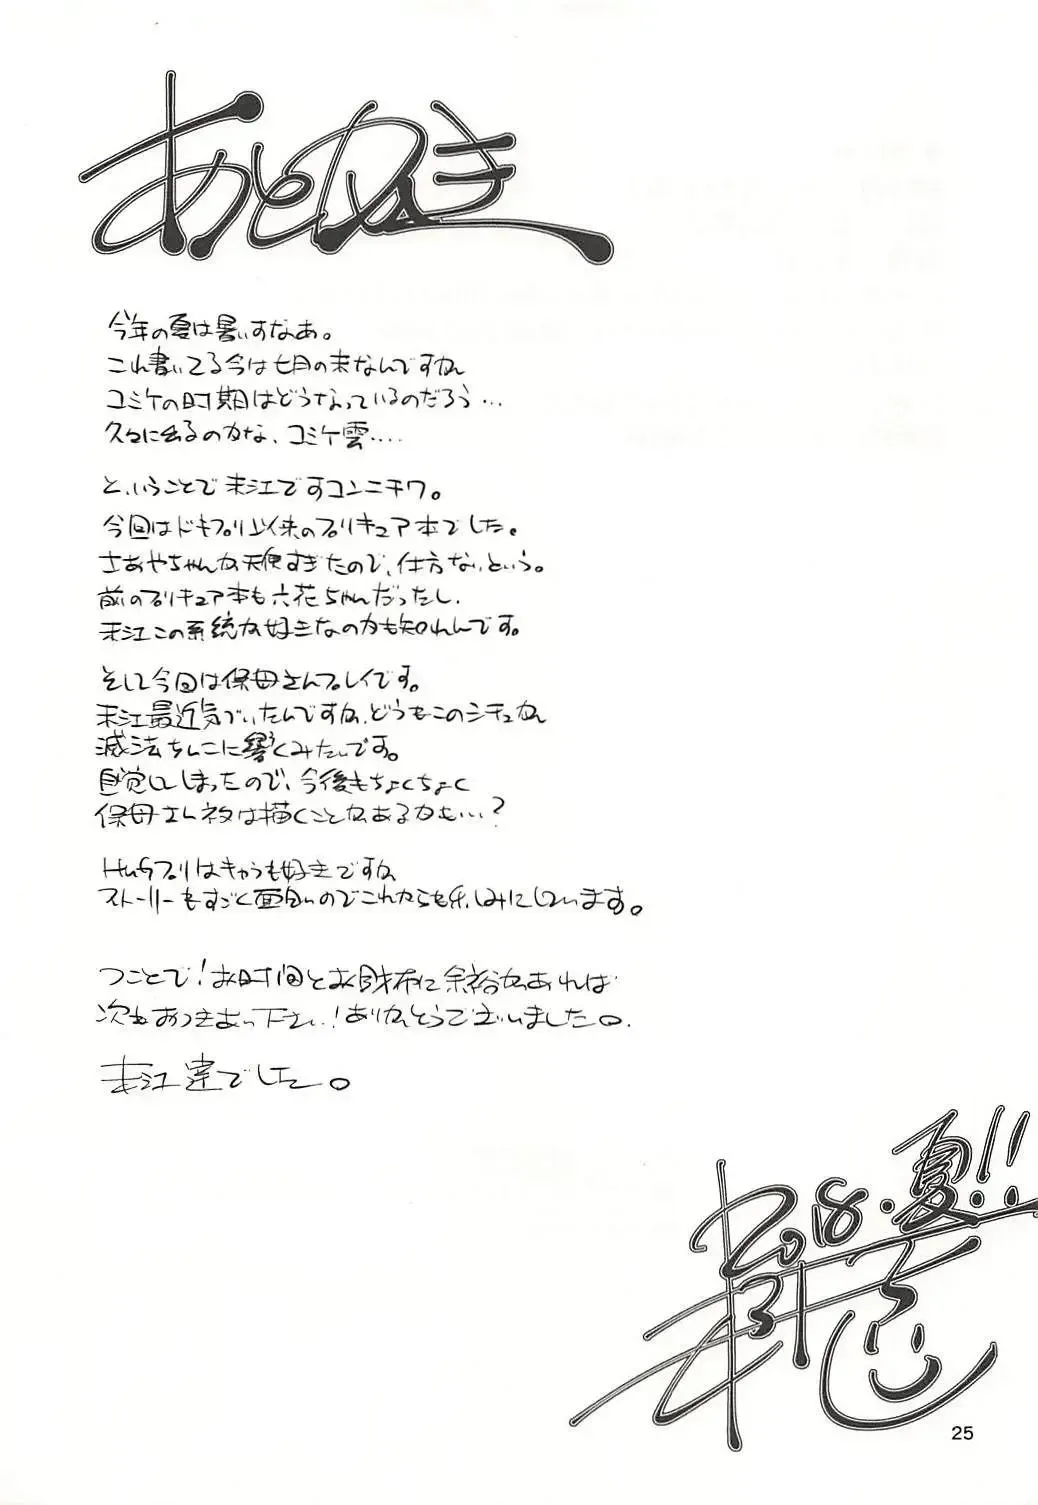 あとがき
今年の夏は暑いすなあ。
これ書いてる今は七月の末なんですが
コミケの時期はどうなっているのだろう…
久々に出るのかな、コミケ雲‥‥
と、いうことで末江ですコンニチワ。
今回はドキプリ以来のプリキュア本でした。
さあやちゃんが天使すぎたので、仕方ないという。
前のプリキュア本も六花ちゃんだったし、
末江この系統が好きなのかも知れんです。
そして今回は保母さんプレイです。
末江最近気づいたんですが、どうもこのシチュが
滅法ちんこに響くみたいです。
自覚してしまったので、今後もちょくちょく
保母さんネタは描くことがあるかも…?
Hugプリはキャラも好きですが
ストーリーもすごく面白いのでこれからも楽しみにしています。
つことで!お時間とお財布に余裕があれば
次もおつきあい下さい!ありがとうございました。
末江達でした。
2018・夏!!
25